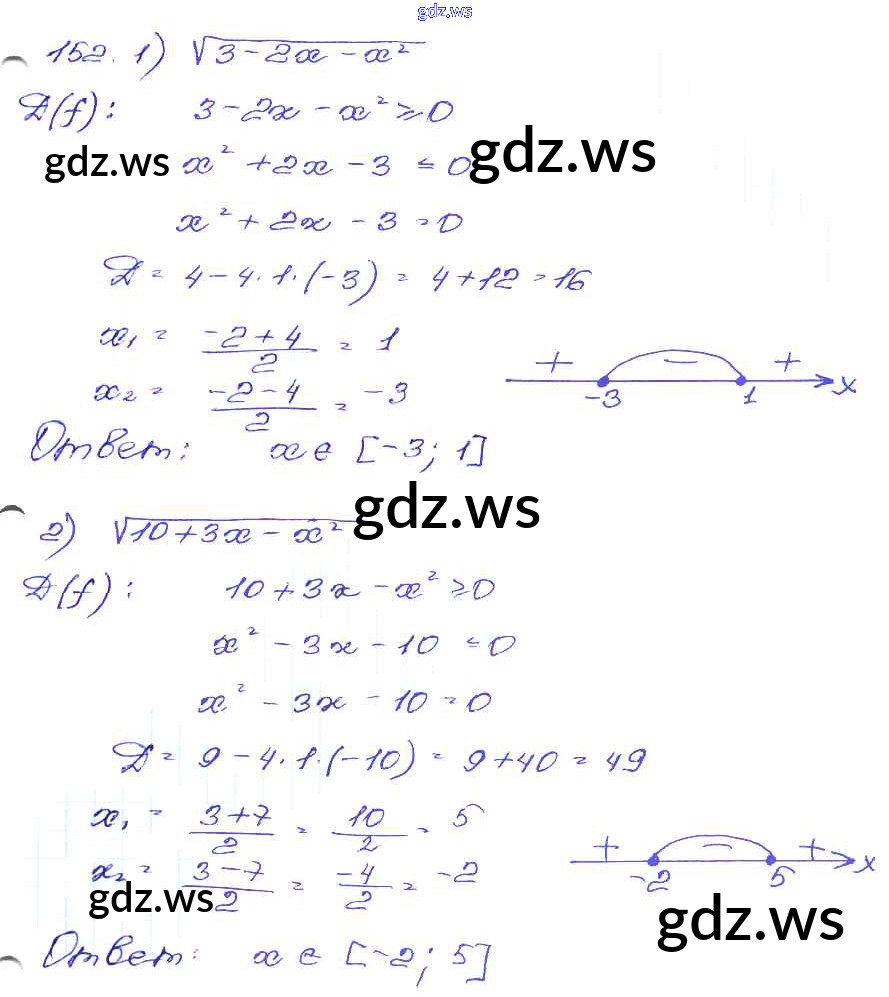 gdz.ws
152. 1) √(3-2x-x²)
D(f): 3-2x-x²≥0
gdz.ws x²+2x-3≤0 gdz.ws
x²+2x-3=0
D = 4-4·1·(-3) = 4+12=16
x₁ = (-2+4)/2 = 1
x₂ = (-2-4)/2 = -3
+ - +
-3 1 x
Ответ: x∈[-3; 1]
gdz.ws
2) √(10+3x-x²)
D(f): 10+3x-x²≥0
x²-3x-10≤0
x²-3x-10=0
D = 9-4·1·(-10) = 9+40=49
x₁ = (3+7)/2 = 10/2 = 5
x₂ = (3-7)/2 = -4/2 = -2
+ - +
-2 5 x
gdz.ws
gdz.ws
Ответ: x∈[-2; 5]